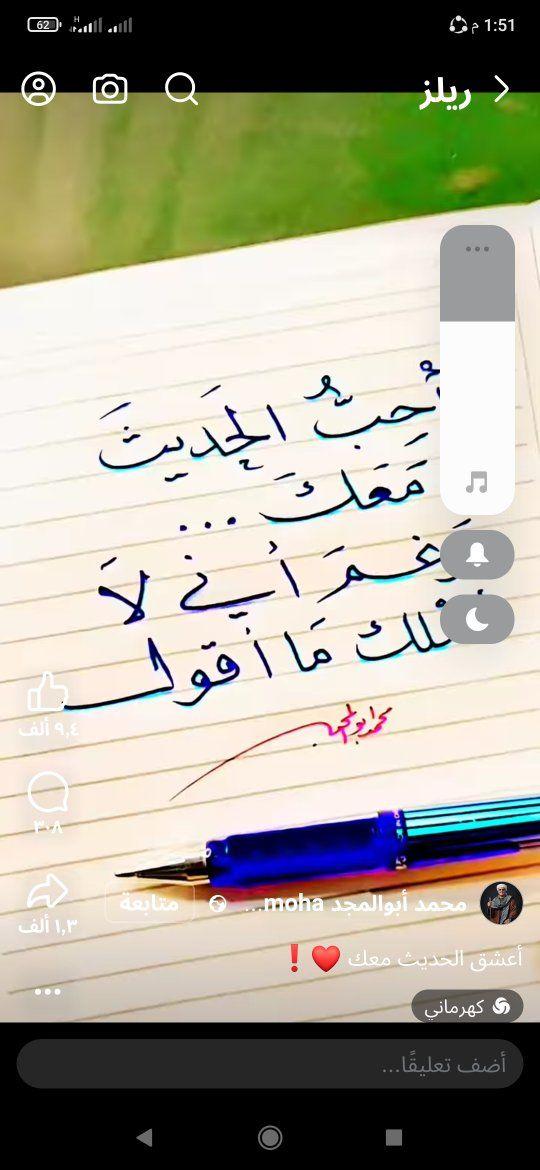 1:51 م
62
H
ريلز
أحبُّ الحَديثَ
مَعَكَ...
رَغمَ أني لاَ
ما أقول
محمد أبوالمجد
٩,٤ ألف
٣٠٨
١,٣ ألف
محمد أبوالمجد moha...
متابعة
أعشق الحديث معك ♥️❗
كهرماني
أضف تعليقًا...